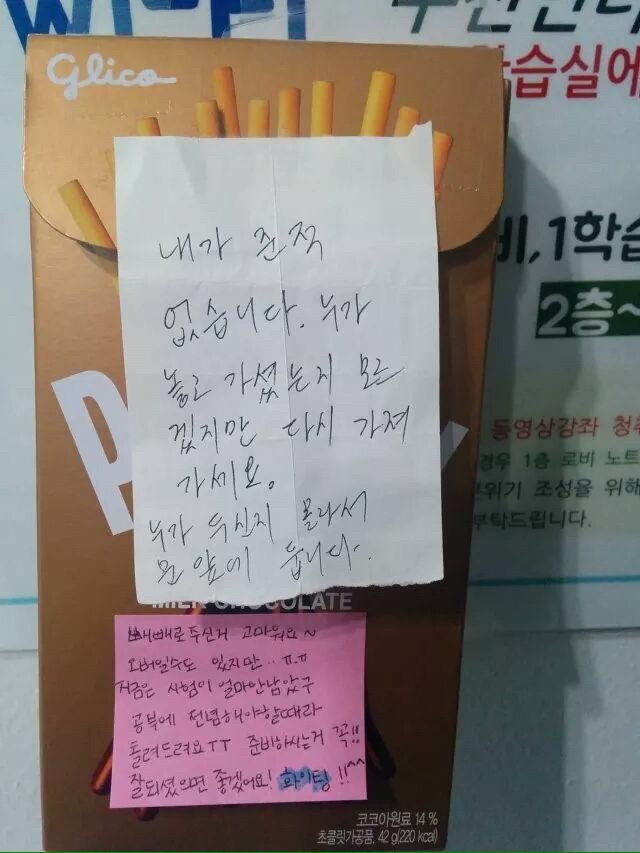 Glico
습실에
비,1학습
2층~
동영상강좌 청
경우 1층 로비 노트
분위기 조성을 위해
부탁드립니다.
내가 준적
없습니다. 누가
놓고 가셨는지 모르
겠지만 다시 가져
가세요.
누가 두신지 몰라서
문 앞에 둡니다.
MILK CHOCOLATE
빼빼로 두신거 고마워요~
오버일수도 있지만..ㅠ.ㅠ
지금은 시험이 얼마안남았구
공부에 전념해야할때라
돌려드려요TT 준비하시는거 꼭!!
잘되셨으면 좋겠어요! 화이팅!!^^
코코아원료 14 %
초콜릿가공품, 42 g(220 kcal)